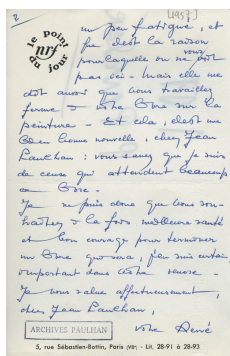 2
[1957]
le point
nrf
du jour
un peu fatigué, et
que c'est la raison
pour laquelle on ne vous voit
pas ici - Mais elle me
dit aussi que vous travaillez
ferme à votre livre sur la
peinture - Et cela, c'est une
bien bonne nouvelle, cher Jean
Paulhan : vous savez que je suis
de ceux qui attendent beaucoup
ce livre -
Je ne puis donc que vous sou-
haiter à la fois meilleure santé
et bon courage pour terminer
un livre qui sera, j'en suis certain,
important dans votre oeuvre -
Je vous salue affectueusement,
cher Jean Paulhan,
votre
ARCHIVES PAULHAN
5, rue Sébastien-Bottin, Paris (VIIe) - Lit. 28-91 à 28-93